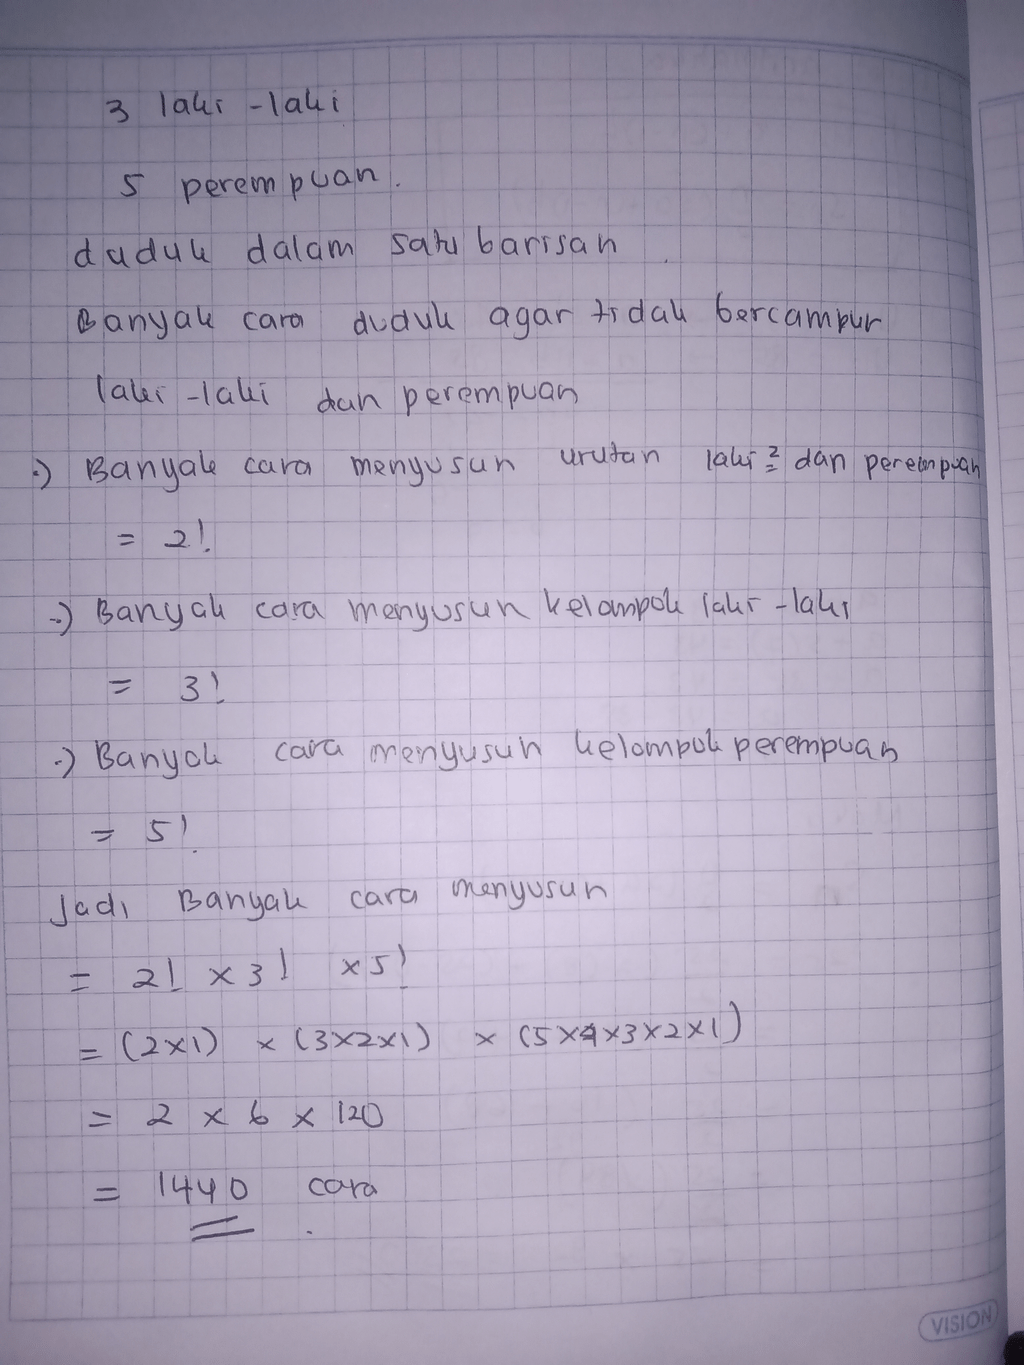 3 laki-laki
5 perempuan.
duduk dalam satu barisan
Banyak cara duduk agar tidak bercampur
laki-laki dan perempuan
•) Banyak cara menyusun urutan laki² dan perempuan
= 2!
•) Banyak cara menyusun kelompok laki-laki
= 3!
•) Banyak cara menyusun kelompok perempuan
= 5!
Jadi Banyak cara menyusun
= 2! × 3! × 5!
= (2×1) × (3×2×1) × (5×4×3×2×1)
= 2 × 6 × 120
= 1440 cara
VISION